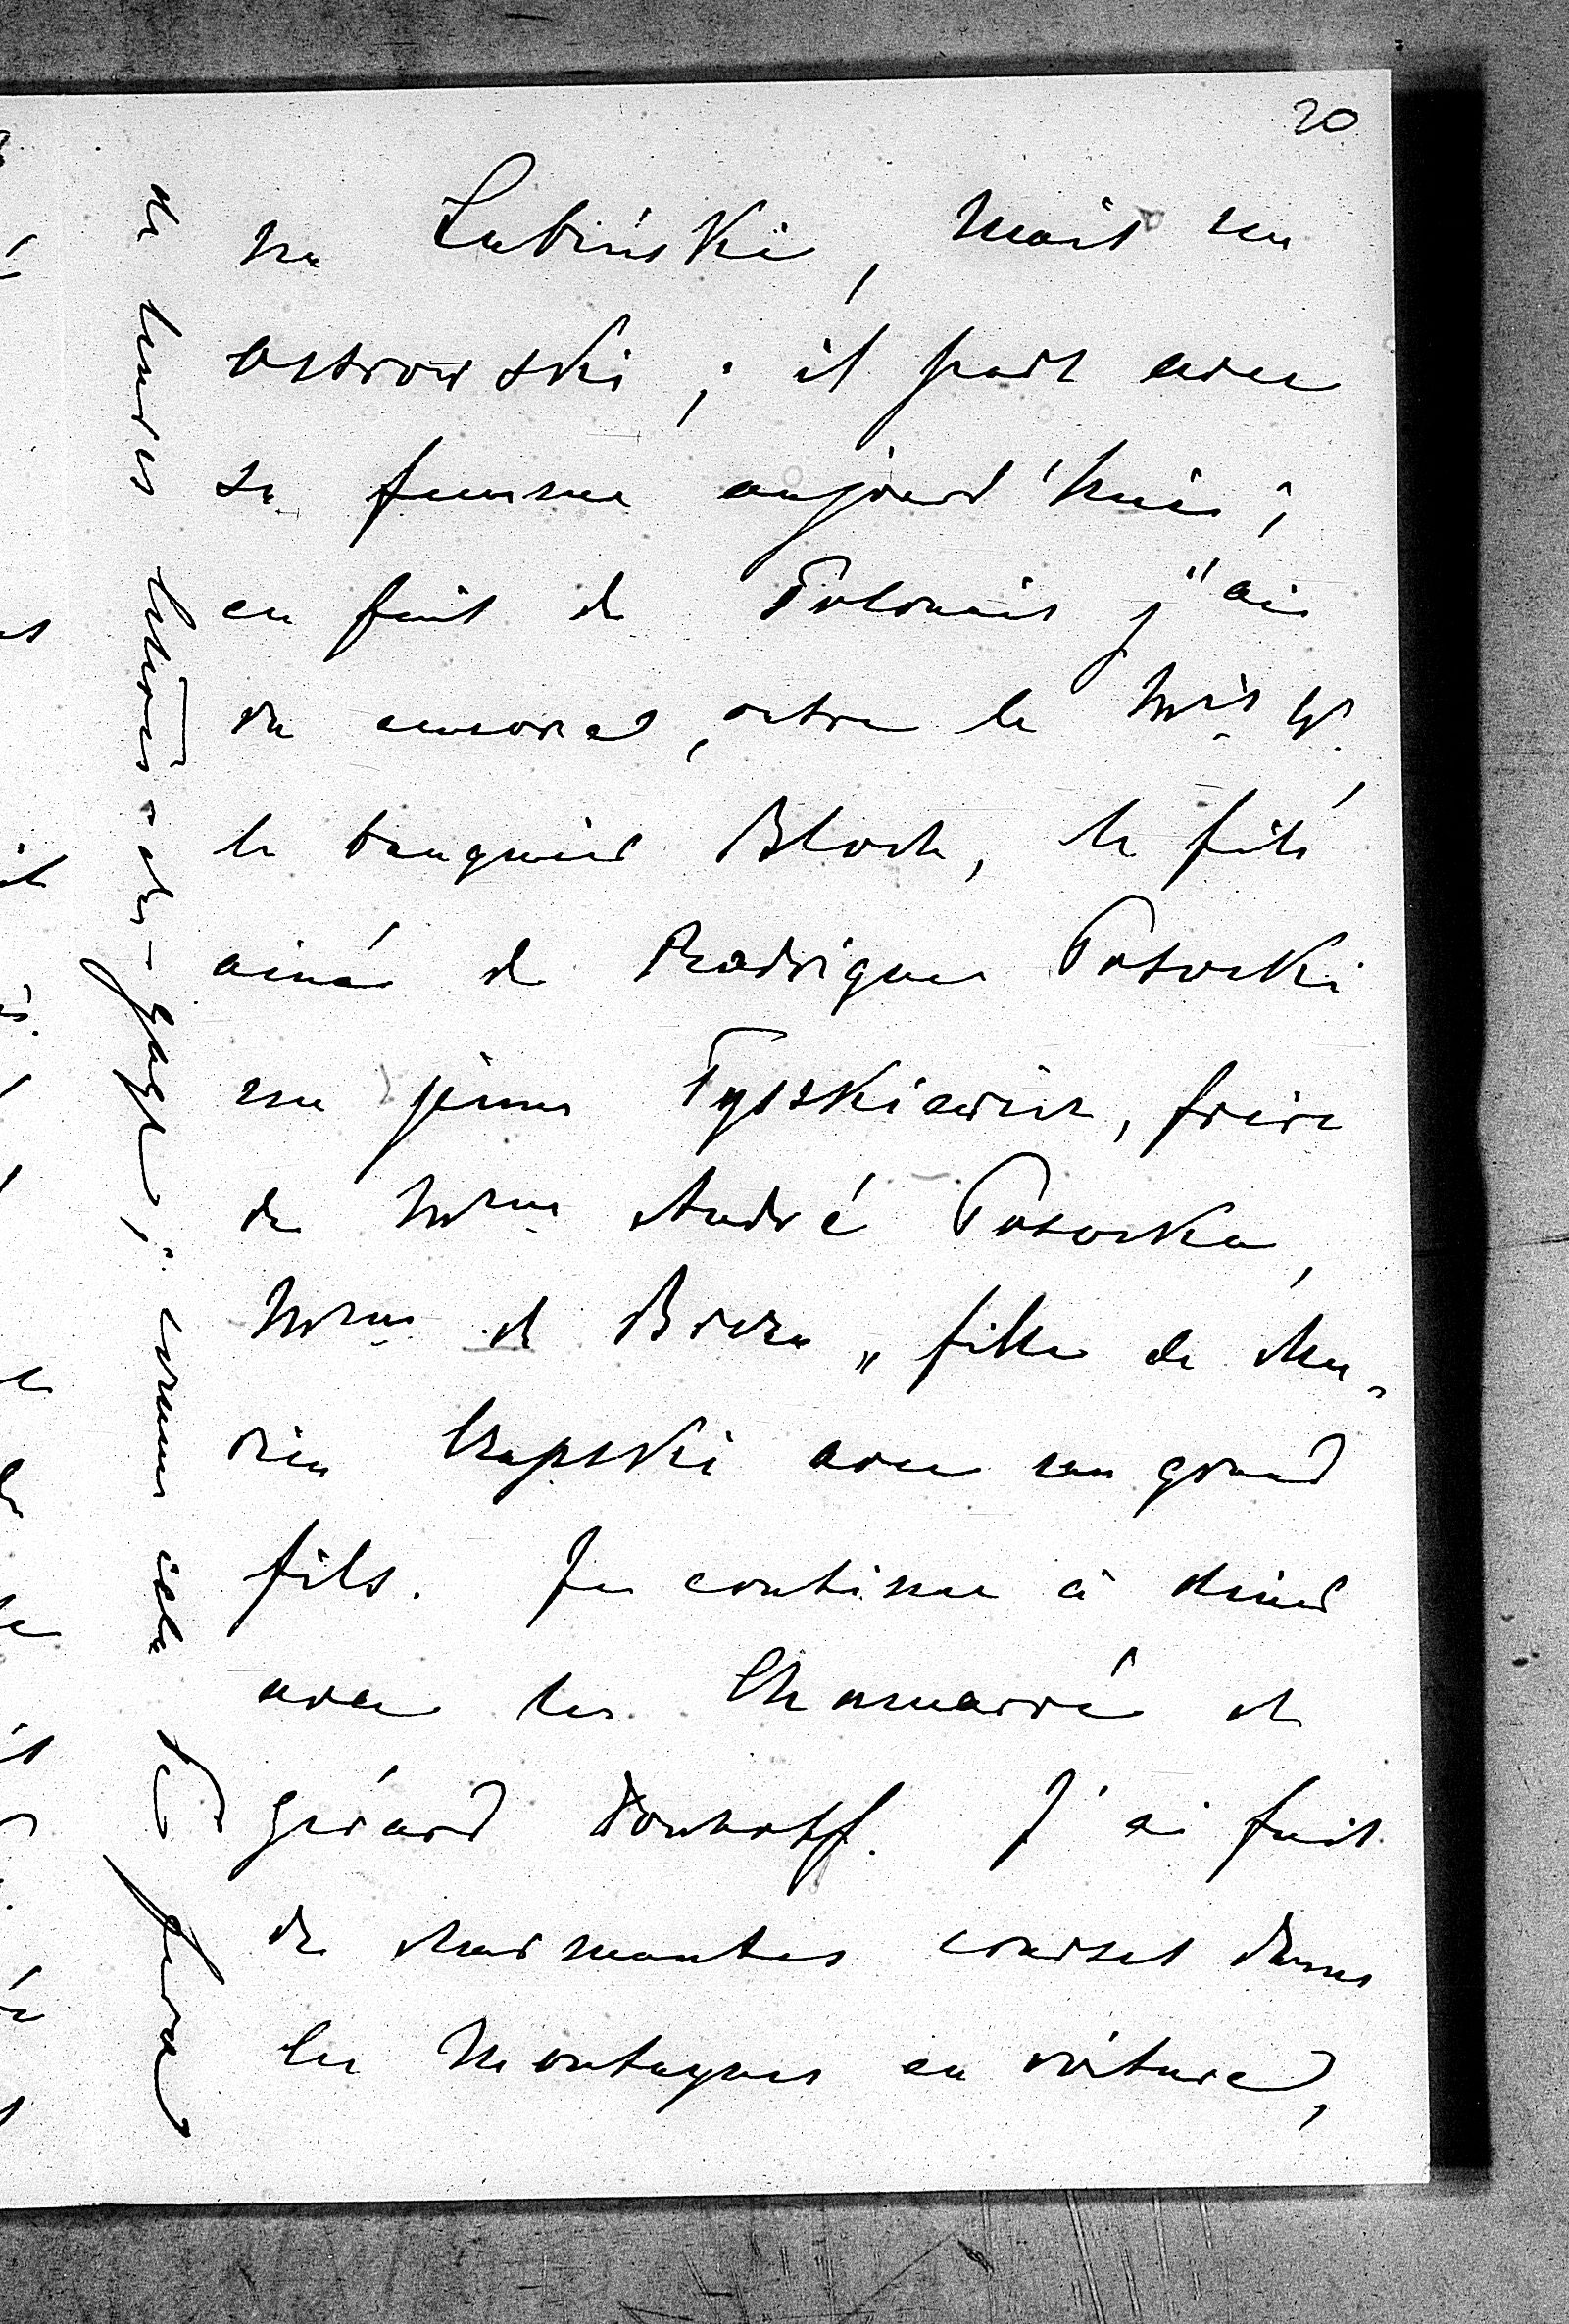 20
un Lubiński, mais un
Ostrowski ; il part avec
sa femme aujourd'hui ;
en fait de Polonais j'ai
du encore, outre le Mis W.,
le banquier Bloch, le fils
ainé de Rodrigue Potocki
un jeune Tyszkiewicz, frère
de Mme André Potocka,
Mme de Breza „ fille de Ma-
rien Czapski avec un grand
fils. Je continue à diner
avec les Chamarré et
Gérard Donhoff. J'ai fait
de charmantes courses dans
les Montagnes en voiture,
de
comme cela te fera